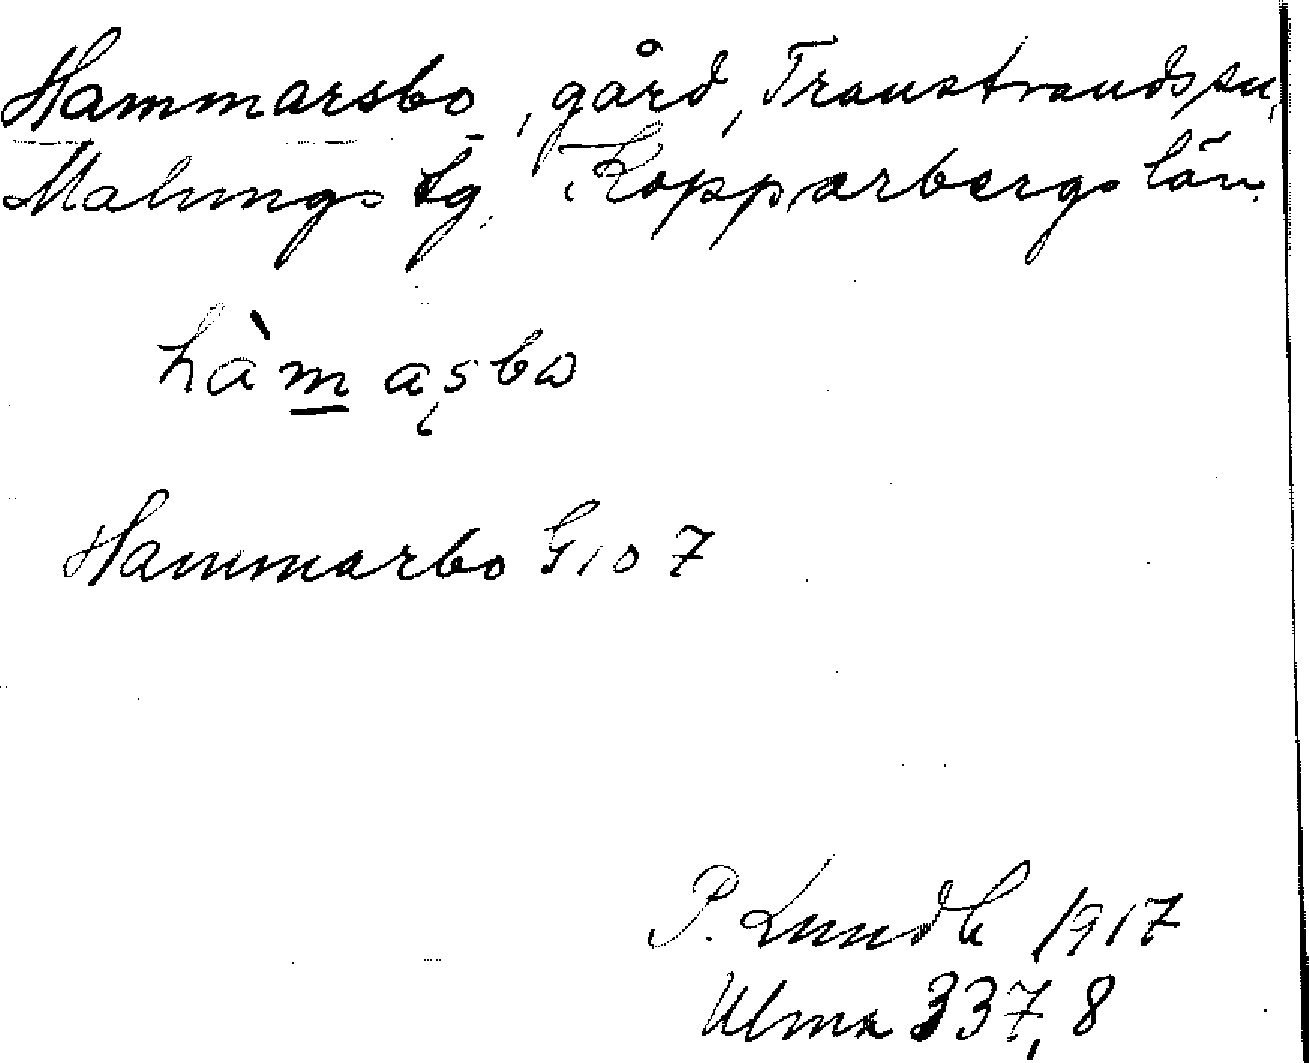 Hammarsbo, gård, Transtrands sn,
Malungs tg. Kopparbergs län.
hàmasbω
Hammarbo G107
P. Lundh 1917
Ulma 337,8